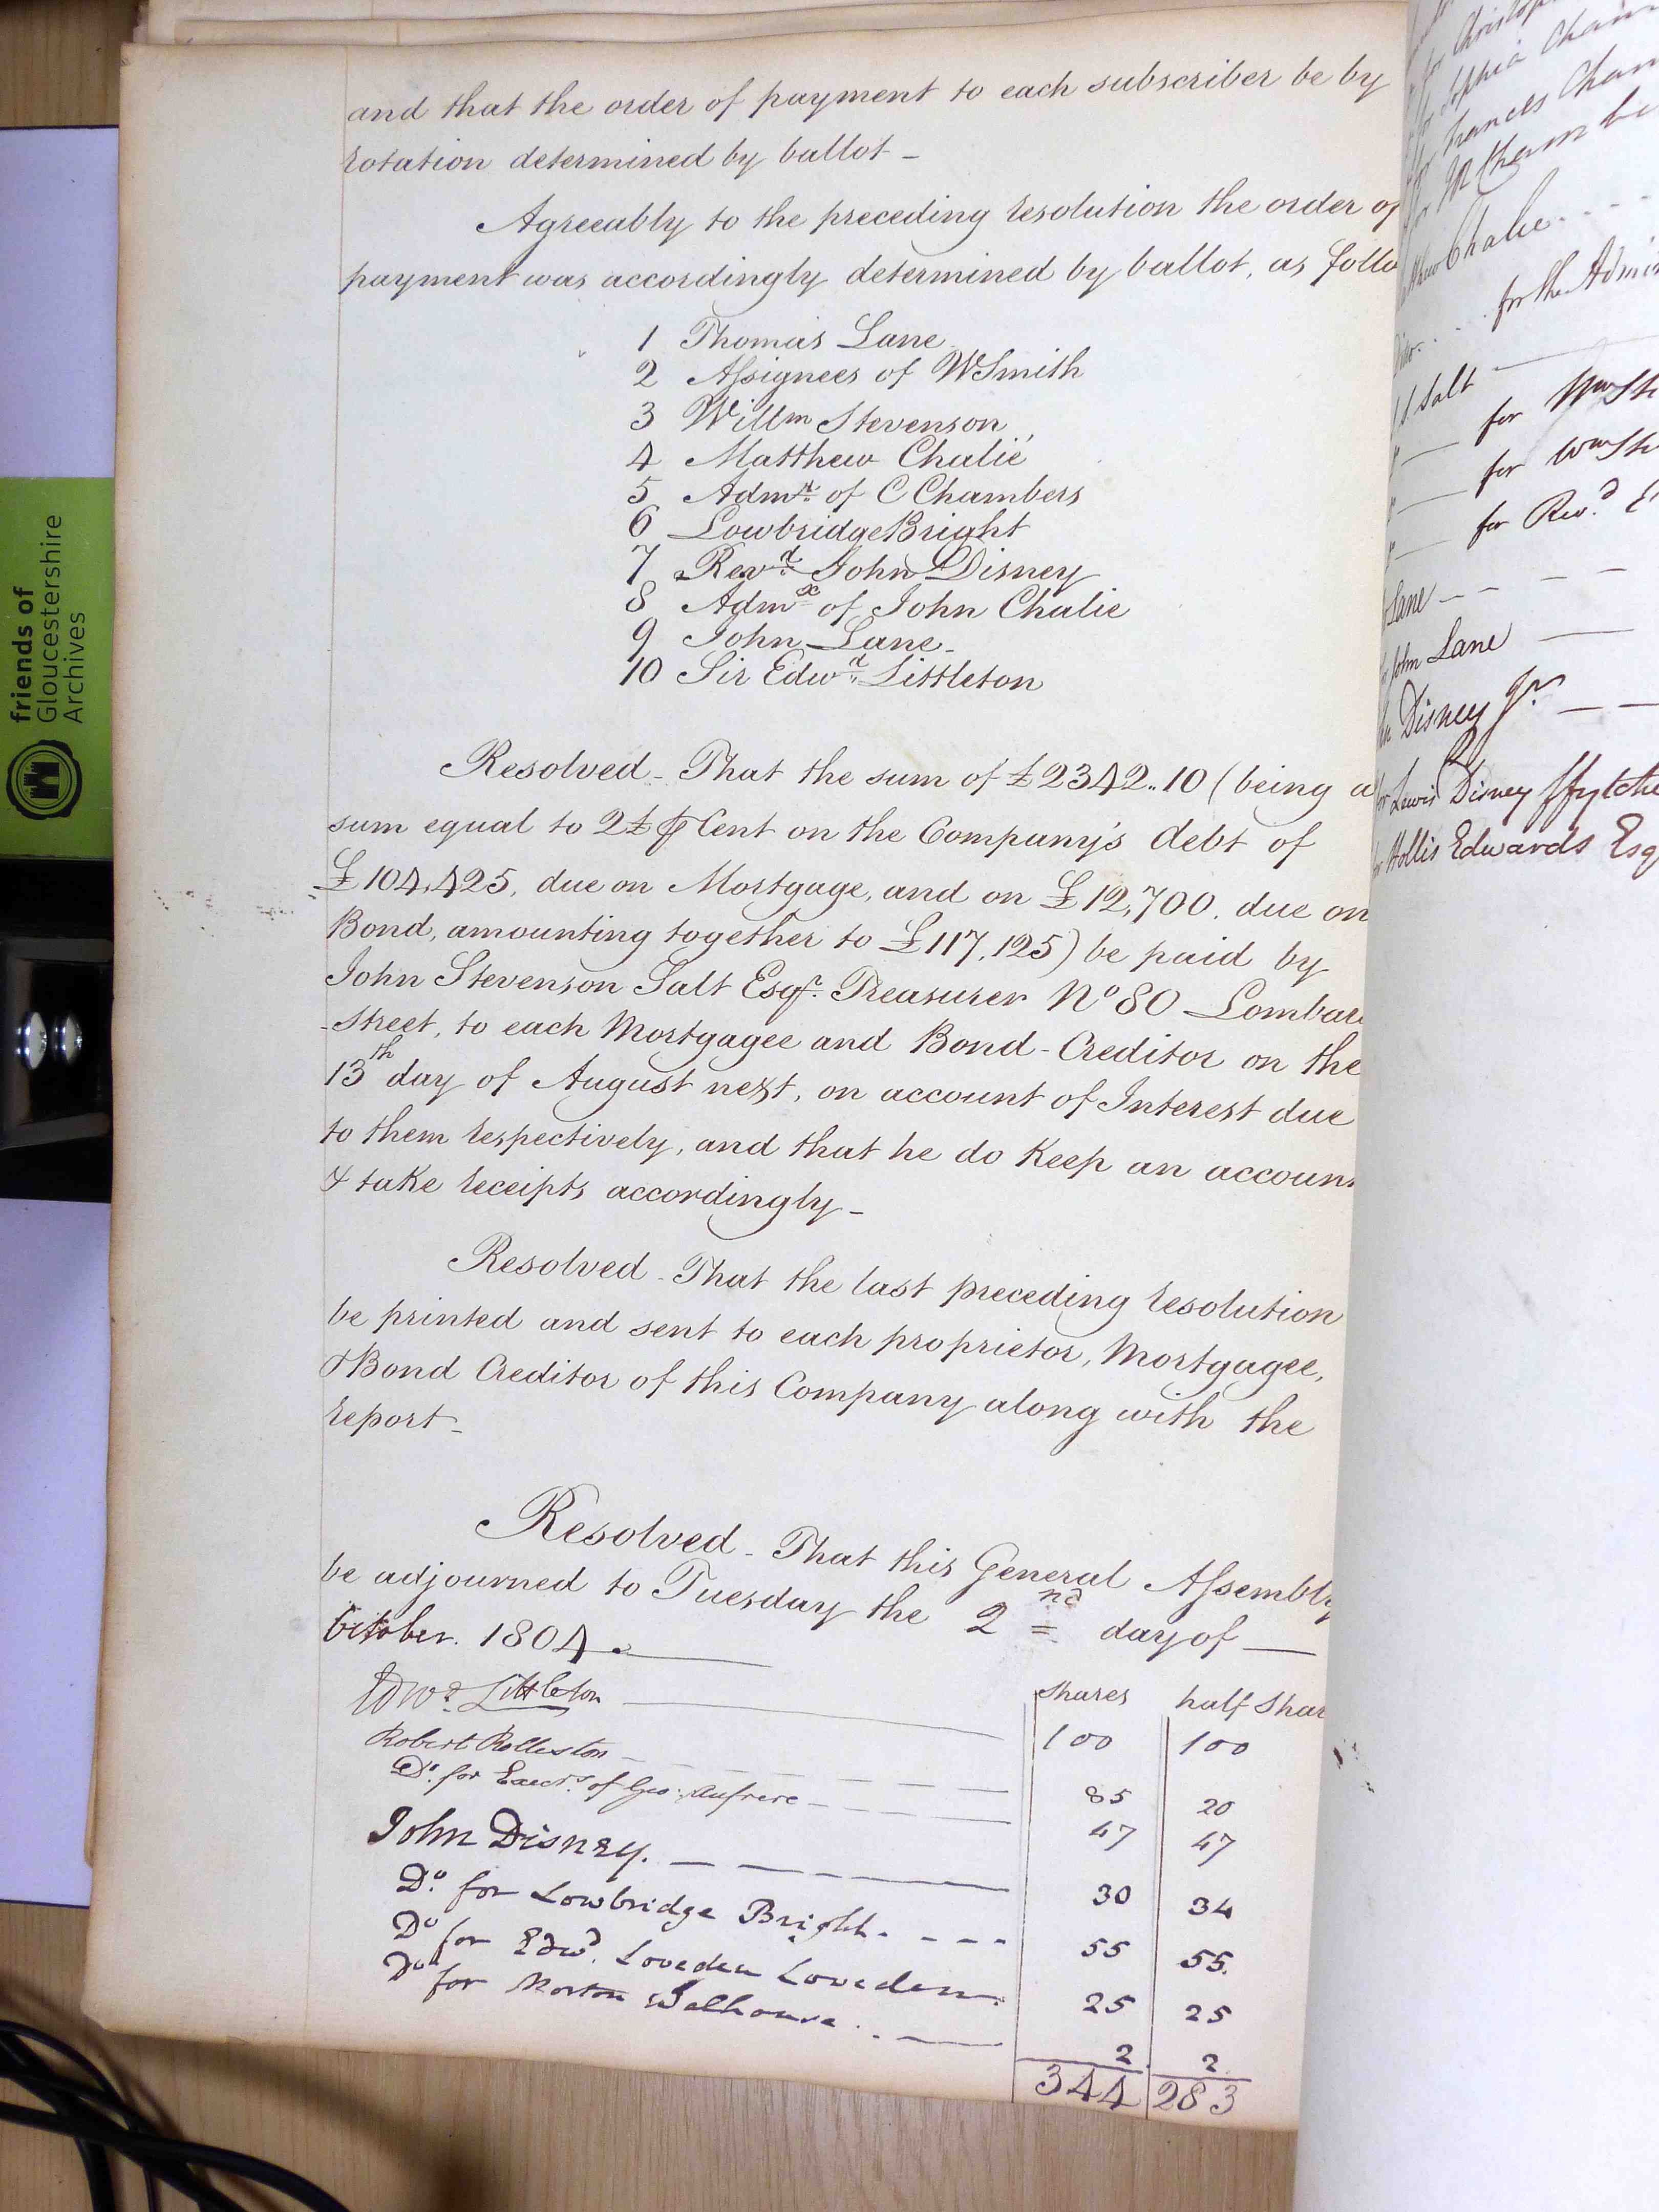 and that the order of payment to each subscriber be by
rotation determined by ballot -
Agreeably to the preceding resolution the order of
payment was accordingly determined by ballot, as follo
1 Thomas Lane
2 Assignees of W Smith
3 Willm Stevenson
4 Matthew Chalié
5 Admr. of C Chambers
6 Lowbridge Bright
7 Revd. John Disney
8 Admx of John Chalie
9 John Lane -
10 Sir Edwd. Littleton
Resolved - That the sum of £2342..10 (being a
sum equal to 2£ ⅌ Cent on the Company's debt of
£104,425, due on Mortgage, and on £12,700, due on
Bond, amounting together to £117,125) be paid by
John Stevenson Salt Esqr. Treasurer No 80 Lombar
-Street, to each Mortgagee and Bond-Creditor on the
13th day of August next, on account of Interest due
to them respectively, and that he do keep an accoun
& take receipts accordingly -
Resolved - That the last preceding resolution
be printed and sent to each proprietor, Mortgagee,
& Bond Creditor of this Company along with the
report -
Resolved - That this General Assembly
be adjourned to Tuesday the 2nd day of
October. 1804.
shares half Shar
Edwd. Littleton 100 100
Robert Rolleston 85 20
Do. for Exects. of Geo: Aufrere 47 47
John Disney. 30 34
Do. for Lowbridge Bright. 55 55.
Do for Edwd. Loveden Loveden 25 25
Do for Morton Walhouse 2 2
344 283
friends of
Gloucestershire
Archives
Sophia Cham
Frances Cham
Chalie
for the Admin
Salt
for Wm St
for Wm St
for Revd. E
Lane
John Lane
Disney Jr
Lewis Disney ffytche
Hollis Edwards Esq